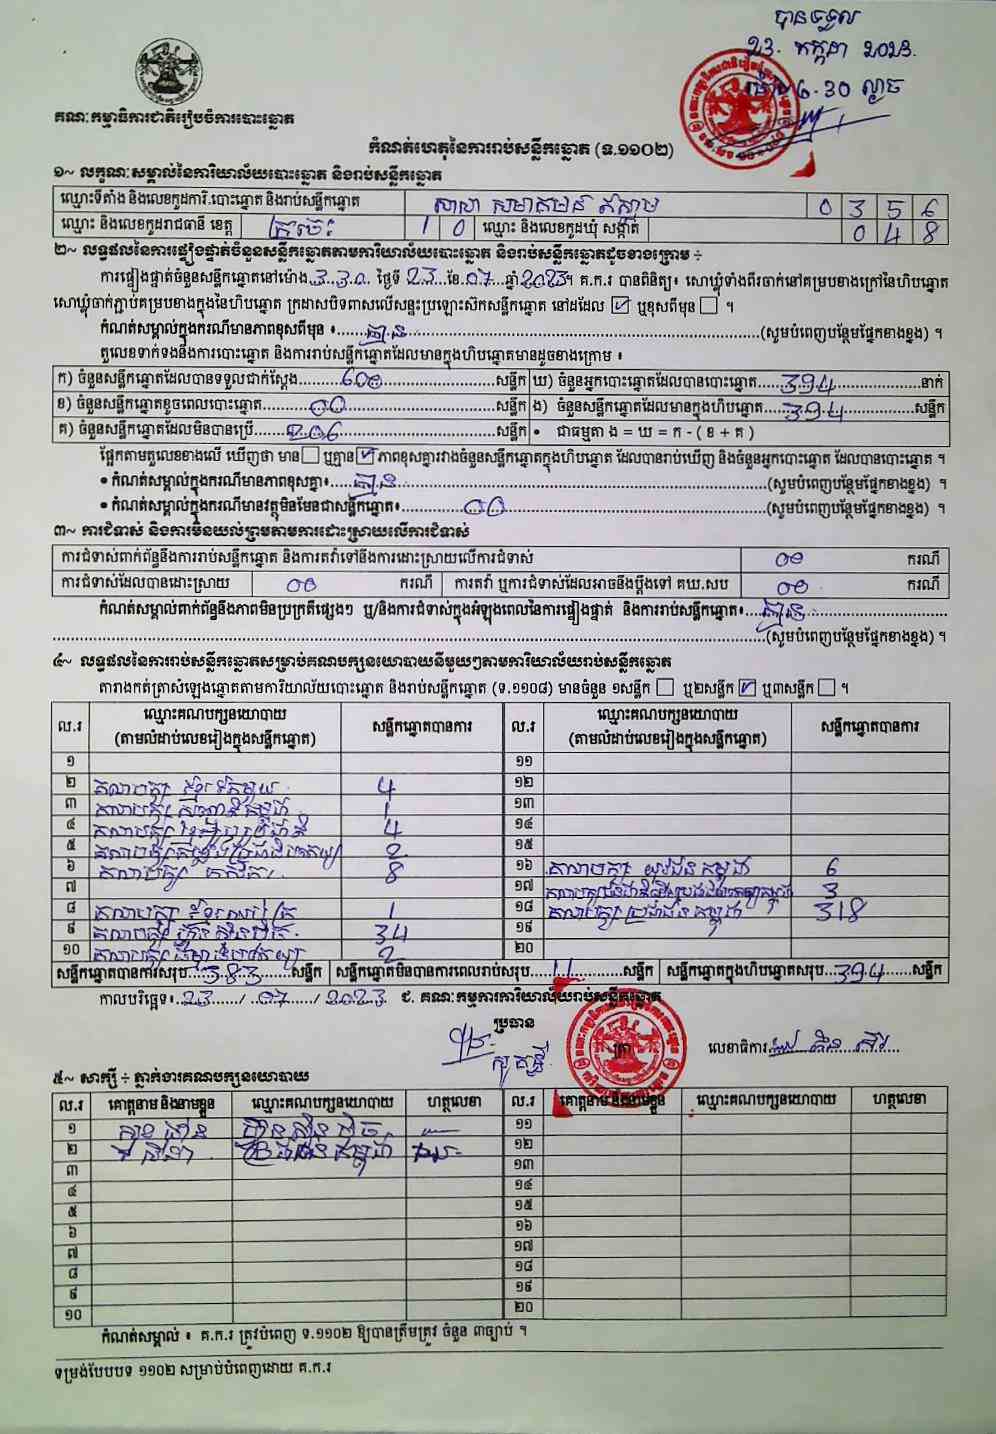 បានទទួល
23. កក្កដា 2023.
ម៉ោង 6.30 ល្ងាច
គណៈកម្មាធិការជាតិរៀបចំការបោះឆ្នោត
កំណត់ហេតុនៃការរាប់សន្លឹកឆ្នោត (ទ.១១០២)
១~ លក្ខណៈសម្គាល់នៃការិយាល័យបោះឆ្នោត និងរាប់សន្លឹកឆ្នោត
ឈ្មោះទីតាំង និងលេខកូដការិ.បោះឆ្នោត និងរាប់សន្លឹកឆ្នោត សាលា សមាគមន៍ ឥស្លាម 0 3 5 6
ឈ្មោះ និងលេខកូដរាជធានី ខេត្ត ក្រចេះ 1 0 ឈ្មោះ និងលេខកូដឃុំ សង្កាត់ 0 4 8
២~ លទ្ធផលនៃការផ្ទៀងផ្ទាត់ចំនួនសន្លឹកឆ្នោតតាមការិយាល័យបោះឆ្នោត និងរាប់សន្លឹកឆ្នោតដូចខាងក្រោម ÷
ការផ្ទៀងផ្ទាត់ចំនួនសន្លឹកឆ្នោតនៅម៉ោង 3.30 ថ្ងៃទី 23 ខែ 07 ឆ្នាំ 2023។ គ.ក.រ បានពិនិត្យ៖ សោឃ្លុំទាំងពីរចាក់នៅគម្របខាងក្រៅនៃហិបឆ្នោត
សោឃ្លុំចាក់ភ្ជាប់គម្របខាងក្នុងនៃហិបឆ្នោត ក្រដាសបិទពាសលើសន្ទះប្រឡោះស៊កសន្លឹកឆ្នោត នៅដដែល ☑ ឬខុសពីមុន ☐ ។
កំណត់សម្គាល់ក្នុងករណីមានភាពខុសពីមុន ៖ គ្មាន (សូមបំពេញបន្ថែមផ្នែកខាងខ្នង) ។
តួលេខទាក់ទងនឹងការបោះឆ្នោត និងការរាប់សន្លឹកឆ្នោតដែលមានក្នុងហិបឆ្នោតមានដូចខាងក្រោម ៖
ក) ចំនួនសន្លឹកឆ្នោតដែលបានទទួលជាក់ស្តែង 600 សន្លឹក ឃ) ចំនួនអ្នកបោះឆ្នោតដែលបានបោះឆ្នោត 394 នាក់
ខ) ចំនួនសន្លឹកឆ្នោតខូចពេលបោះឆ្នោត 00 សន្លឹក ង) ចំនួនសន្លឹកឆ្នោតដែលមានក្នុងហិបឆ្នោត 394 សន្លឹក
គ) ចំនួនសន្លឹកឆ្នោតដែលមិនបានប្រើ 206 សន្លឹក • ជាធម្មតា ង = ឃ = ក - ( ខ + គ )
ផ្អែកតាមតួលេខខាងលើ ឃើញថា មាន ☐ ឬគ្មាន ☑ ភាពខុសគ្នារវាងចំនួនសន្លឹកឆ្នោតក្នុងហិបឆ្នោត ដែលបានរាប់ឃើញ និងចំនួនអ្នកបោះឆ្នោត ដែលបានបោះឆ្នោត ។
• កំណត់សម្គាល់ក្នុងករណីមានភាពខុសគ្នា៖ គ្មាន (សូមបំពេញបន្ថែមផ្នែកខាងខ្នង) ។
• កំណត់សម្គាល់ក្នុងករណីមានវត្ថុមិនមែនជាសន្លឹកឆ្នោត៖ 00 (សូមបំពេញបន្ថែមផ្នែកខាងខ្នង) ។
៣~ ការជំទាស់ និងការមិនយល់ព្រមតាមការដោះស្រាយលើការជំទាស់
ការជំទាស់ពាក់ព័ន្ធនឹងការរាប់សន្លឹកឆ្នោត និងការតវ៉ាទៅនឹងការដោះស្រាយលើការជំទាស់ 00 ករណី
ការជំទាស់ដែលបានដោះស្រាយ 00 ករណី ការតវ៉ា ឬការជំទាស់ដែលអាចនឹងប្តឹងទៅ គឃ.សប 00 ករណី
កំណត់សម្គាល់ពាក់ព័ន្ធនឹងភាពមិនប្រក្រតីផ្សេងៗ ឬ/និងការជំទាស់ក្នុងអំឡុងពេលនៃការផ្ទៀងផ្ទាត់ និងការរាប់សន្លឹកឆ្នោត៖ គ្មាន
(សូមបំពេញបន្ថែមផ្នែកខាងខ្នង) ។
៤~ លទ្ធផលនៃការរាប់សន្លឹកឆ្នោតសម្រាប់គណបក្សនយោបាយនីមួយៗតាមការិយាល័យរាប់សន្លឹកឆ្នោត
តារាងកត់ត្រាសំឡេងឆ្នោតតាមការិយាល័យបោះឆ្នោត និងរាប់សន្លឹកឆ្នោត (ទ.១១០៨) មានចំនួន ១សន្លឹក ☐ ឬ២សន្លឹក ☑ ឬ៣សន្លឹក ☐ ។
ល.រ ឈ្មោះគណបក្សនយោបាយ (តាមលំដាប់លេខរៀងក្នុងសន្លឹកឆ្នោត) សន្លឹកឆ្នោតបានការ ល.រ ឈ្មោះគណបក្សនយោបាយ (តាមលំដាប់លេខរៀងក្នុងសន្លឹកឆ្នោត) សន្លឹកឆ្នោតបានការ
១ ១១
២ គណបក្ស ខ្មែរតែមួយ 4 ១២
៣ គណបក្ស 1 ១៣
៤ គណបក្ស 4 ១៤
៥ គណបក្ស 2 ១៥
៦ គណបក្ស កសិករ 8 ១៦ គណបក្ស យុវជនកម្ពុជា 6
៧ ១៧ គណបក្ស 3
៨ គណបក្ស ខ្មែរ 1 ១៨ គណបក្ស ប្រជាជនកម្ពុជា 318
៩ គណបក្ស ហ៊្វុនស៊ិនប៉ិច 34 ១៩
១០ គណបក្ស 2 ២០
សន្លឹកឆ្នោតបានការសរុប 383 សន្លឹក សន្លឹកឆ្នោតមិនបានការពេលរាប់សរុប 11 សន្លឹក សន្លឹកឆ្នោតក្នុងហិបឆ្នោតសរុប 394 សន្លឹក
កាលបរិច្ឆេទ៖ 23 / 07 / 2023 ជ. គណៈកម្មការការិយាល័យរាប់សន្លឹកឆ្នោត
ប្រធាន
ត្រា
លេខាធិការ
៥~ សាក្សី ÷ ភ្នាក់ងារគណបក្សនយោបាយ
ល.រ គោត្តនាម និងនាមខ្លួន ឈ្មោះគណបក្សនយោបាយ ហត្ថលេខា ល.រ គោត្តនាម និងនាមខ្លួន ឈ្មោះគណបក្សនយោបាយ ហត្ថលេខា
១ ហ៊្វុនស៊ិនប៉ិច ១១
២ ប្រជាជនកម្ពុជា ១២
៣ ១៣
៤ ១៤
៥ ១៥
៦ ១៦
៧ ១៧
៨ ១៨
៩ ១៩
១០ ២០
កំណត់សម្គាល់ ៖ គ.ក.រ ត្រូវបំពេញ ទ.១១០២ ឱ្យបានត្រឹមត្រូវ ចំនួន ៣ច្បាប់ ។
ទម្រង់បែបបទ ១១០២ សម្រាប់បំពេញដោយ គ.ក.រ